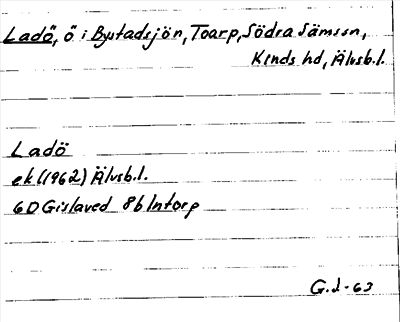 Ladö, ö i Bystadsjön, Toarp, Södra Sämssn,
Kinds hd, Älvsb.l.
Ladö
ek (1962) Älvsb.l.
6D Gislaved 8b Intorp
G.d-63